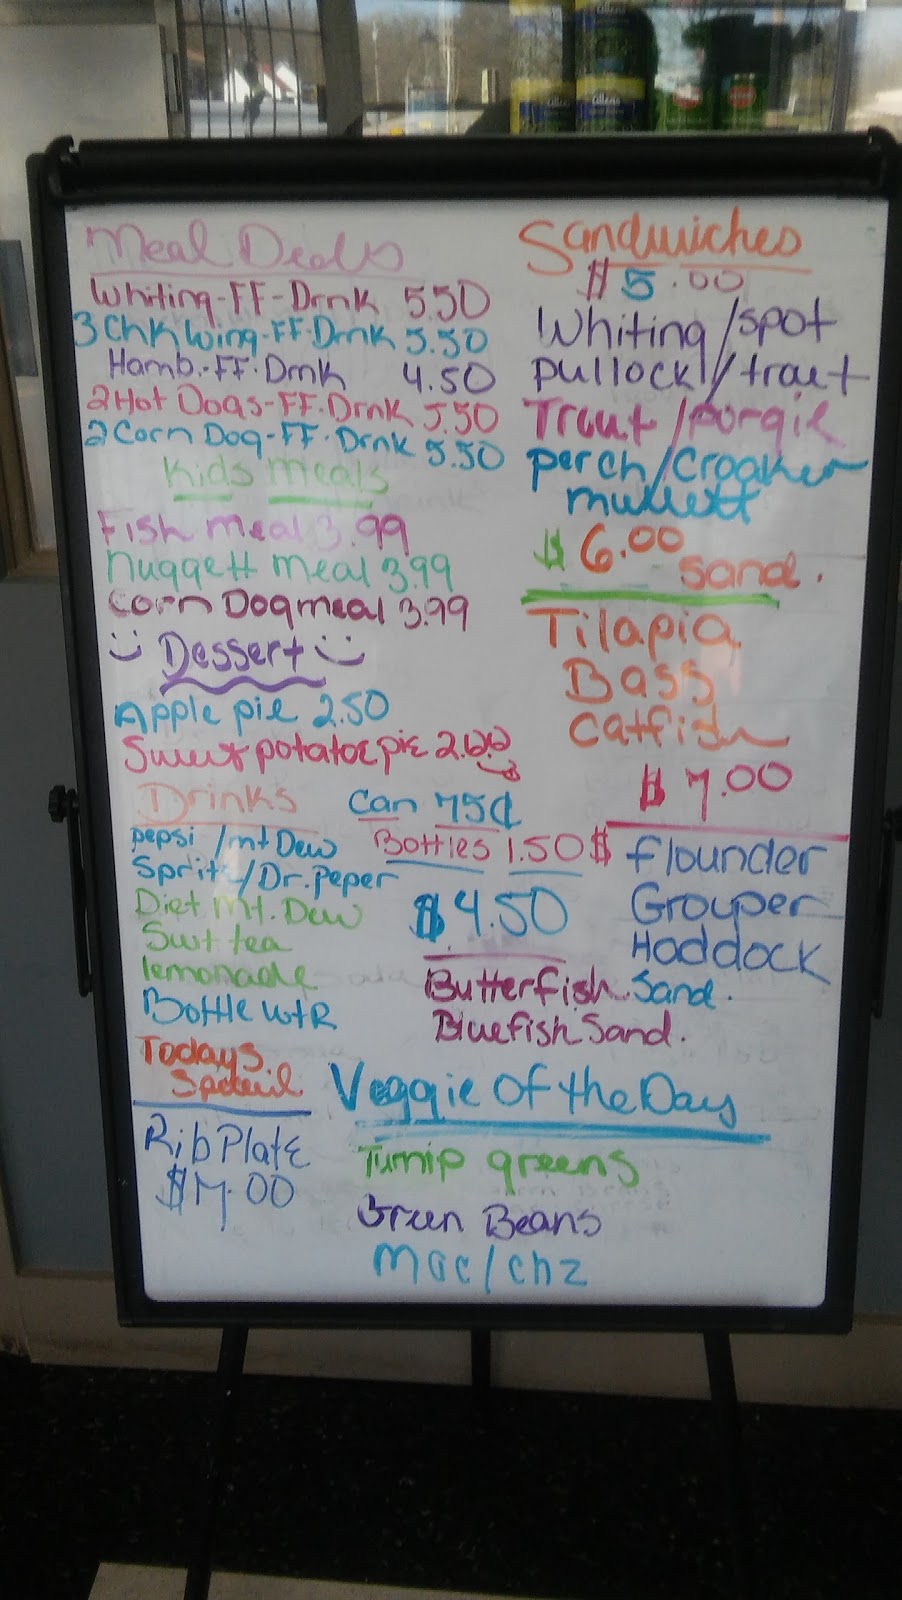 Meal Deals
Whiting-FF-Drnk 5.50
3 Chk Wing-FF-Drnk 5.50
Hamb.-FF-Drnk 4.50
2 Hot Dogs-FF-Drnk 5.50
2 Corn Dog-FF-Drnk 5.50
Kids Meals
Fish Meal 3.99
Nuggett Meal 3.99
Corn Dog meal 3.99
Dessert
Apple pie 2.50
Sweet potatoe pie 2.00
Drinks
Can 75¢
Bottles 1.50
pepsi/mt Dew
Sprite/Dr. Peper
Diet Mt. Dew
Swt tea
lemonade
Bottle wtR
Todays
Special
Rib Plate
$7.00
Sandwiches
$5.00
Whiting/spot
pullock/trout
Trout/porgie
perch/Croaker
mullett
$6.00 sand.
Tilapia
Bass
Catfish
$7.00
$ flounder
Grouper
Haddock
$4.50
Butterfish Sand.
Bluefish Sand.
Veggie Of the Day
Turnip greens
Green Beans
Mac/chz